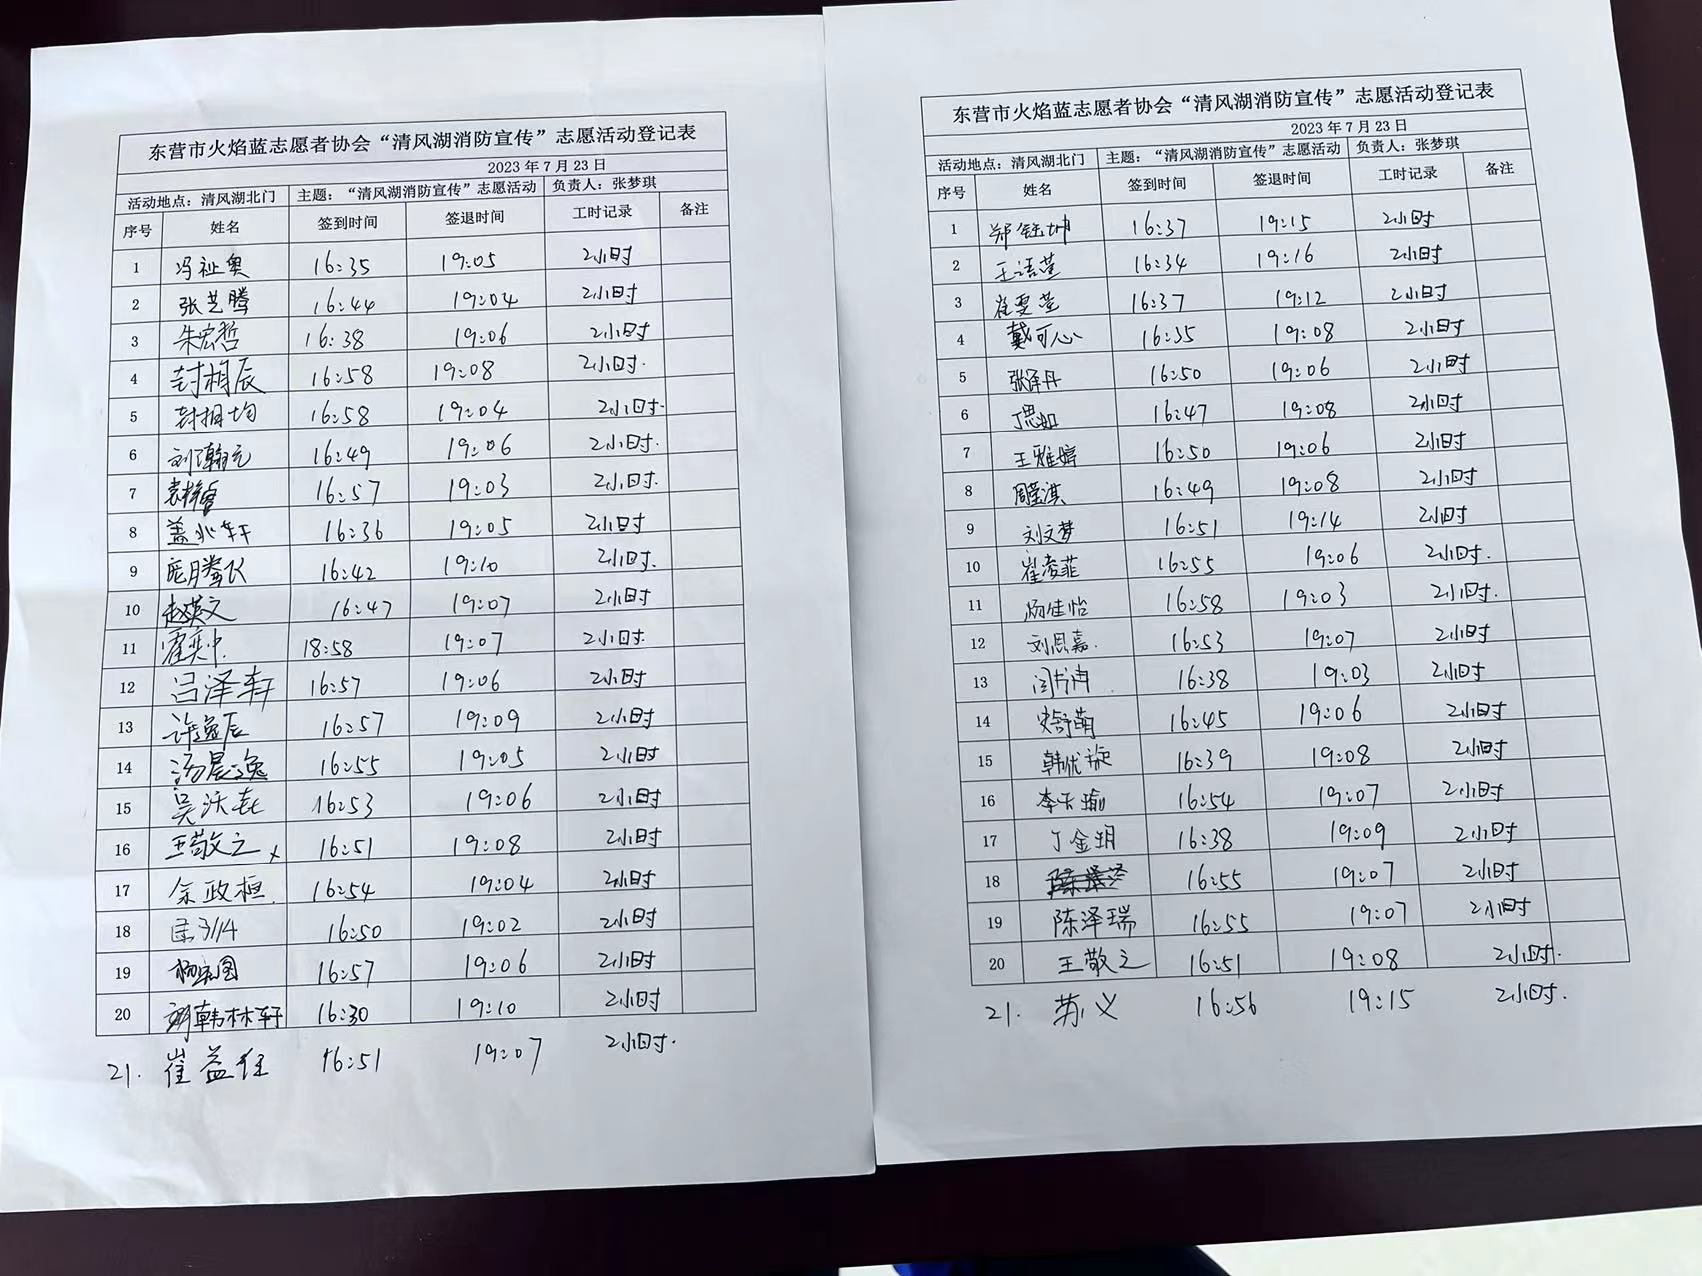 东营市火焰蓝志愿者协会“清风湖消防宣传”志愿活动登记表
2023年7月23日
活动地点：清风湖北门 主题：“清风湖消防宣传”志愿活动 负责人：张梦琪
序号 姓名 签到时间 签退时间 工时记录 备注
1 冯祉奥 16:35 19:05 2小时
2 张艺腾 16:44 19:04 2小时
3 朱宏哲 16:38 19:06 2小时
4 封相辰 16:58 19:08 2小时.
5 封相均 16:58 19:04 2小时.
6 刘瀚元 16:49 19:06 2小时.
7 16:57 19:03 2小时.
8 盖兆轩 16:36 19:05 2小时
9 庞腾飞 16:42 19:10 2小时.
10 赵英文 16:47 19:07 2小时
11 霍奕中. 18:58 19:07 2小时.
12 吕泽轩 16:57 19:06 2小时
13 许逸辰 16:57 19:09 2小时
14 汤晨逸 16:55 19:05 2小时
15 吴沃垚 16:53 19:06 2小时
16 王敬之 x 16:51 19:08 2小时
17 余政桓. 16:54 19:04 2小时
18 16:50 19:02 2小时
19 16:57 19:06 2小时
20 韩林轩 16:30 19:10 2小时
21. 崔益任 16:51 19:07 2小时.
东营市火焰蓝志愿者协会“清风湖消防宣传”志愿活动登记表
2023年7月23日
活动地点：清风湖北门 主题：“清风湖消防宣传”志愿活动 负责人：张梦琪
序号 姓名 签到时间 签退时间 工时记录 备注
1 郑钰坤 16:37 19:15 2小时
2 王语萱 16:34 19:16 2小时
3 崔雯萱 16:37 19:12 2小时
4 戴可心 16:35 19:08 2小时
5 张泽丹 16:50 19:06 2小时
6 丁思如 16:47 19:08 2小时
7 王雅婷 16:50 19:06 2小时
8 周莹淇 16:49 19:08 2小时
9 刘文梦 16:51 19:14 2小时
10 崔凌菲 16:55 19:06 2小时.
11 杨佳怡 16:58 19:03 2小时.
12 刘恩嘉. 16:53 19:07 2小时
13 闫书冉 16:38 19:03 2小时
14 16:45 19:06 2小时
15 韩优璇 16:39 19:08 2小时
16 李天瑜 16:54 19:07 2小时
17 丁金玥 16:38 19:09 2小时
18 16:55 19:07 2小时
19 陈泽瑞 16:55 19:07 2小时
20 王敬之 16:51 19:08 2小时.
21. 苏义 16:56 19:15 2小时.